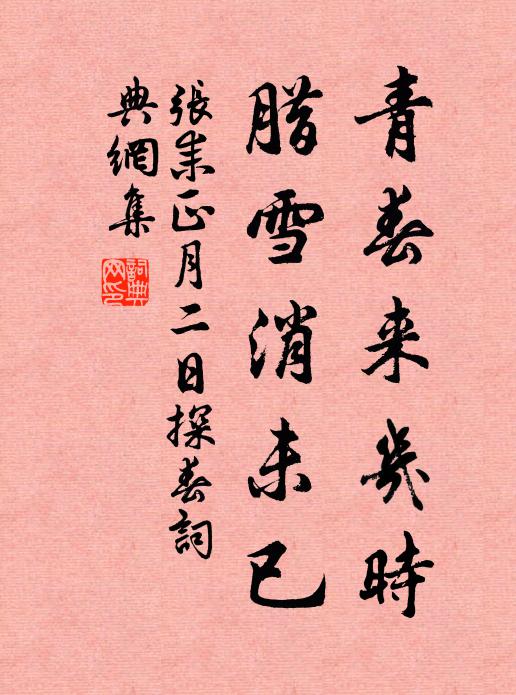 青春来幾時
腊雪消未已
張耒正月二日探春詞
典網集
詞典網印